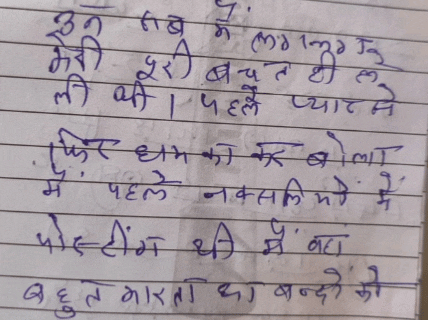 उन सब में लगभग
मेरी पूरी बचत ही ले
ली थी। पहले प्यार से
फिर धमका कर बोला
मैं पहले नक्सलियों में
पोस्टींग थी मैं वहा
बहुत मारता था बन्दों को